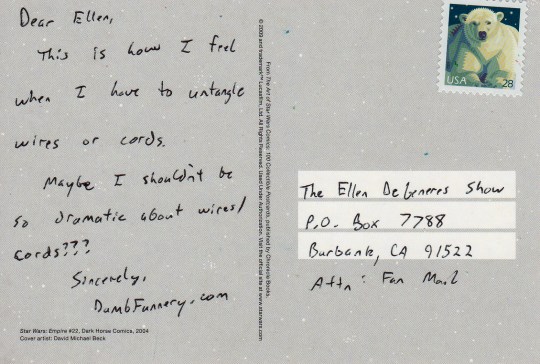 Dear Ellen,
This is how I feel
when I have to untangle
wires or cords.
Maybe I shouldn't be
so dramatic about wires/
cords???
Sincerely,
DumbFunnery.com
Star Wars: Empire #22, Dark Horse Comics, 2004
Cover artist: David Michael Beck
© 2009 and trademark™ Lucasfilm, Ltd. All Rights Reserved. Used Under Authorization. Visit the official site at www.starwars.com
From The Art of Star Wars Comics: 100 Collectible Postcards, published by Chronicle Books.
USA 28
The Ellen DeGeneres Show
P.O. Box 7788
Burbank, CA 91522
Attn: Fan Mail